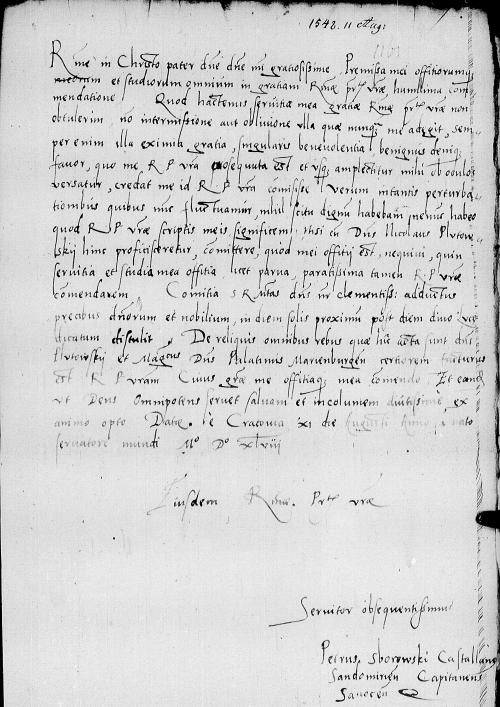 1548. 11 Aug:
Rme in Chro pater dne dne mi gratiosissime, Premissa mei offitiorumq
meorum et studiorum omnium in gratiam Rmae prtis vrae, humilima com
mendatione Quod hactenus servitia mea gratiae Rmae prtis vrae non
obtulerim, no intermissione aut oblivione ulla quae nunq me adegit, sem
per enim illa eximia gratia, singularis benevolentia benignus deniq
favor, quo me R P vra prosequuta est et usq amplectitur mihi ob oculos
versatur, credat me id R P vra comisisse Verum in tantis perturba
tionibus quibus nuc fluctuamur, nihil scitu dignu habebam neque habeo
quod R P vrae scriptis meis significem, nisi cu Dns Nicolaus Plutow
skij hinc proficisceretur, comittere, quod mei offitij est, nequivi, quin
servitia et studia mea offitia, licet parva, paratissima tamen R P vrae
comendarem Comitia S R Mtas dns nr clementiss: adductus
precibus dnorum et nobilium, in diem solis proximu post diem divo
dicatum distulit, De reliquis omnibus rebus quae hic acta sunt dns
Plutowskij et Magcus Dns Palatinus Marienburgen certiorem facturus
est R P vram Cuius grae me offitiaq mea comendo Et eam
ut Deus Omnipotens servet salvam et incolumem diutissime, ex
animo opto Datae e Cracovia XI die Augusti Anno a nato
servatore mundi Mo Do xlviij
Eiusdem Rmae. Prtis vrae
Servitor obsequentissimus
Petrus Sborowski Castellanus
Sandomirien Capitaneus
Sanocen